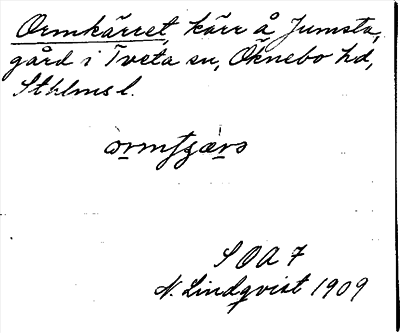 Ormkärret, kärr å Jumsta,
gård i Tveta sn, Öknebo hd,
Sthlms l.
òrmfzærs
S O A 7
N. Lindqvist 1909